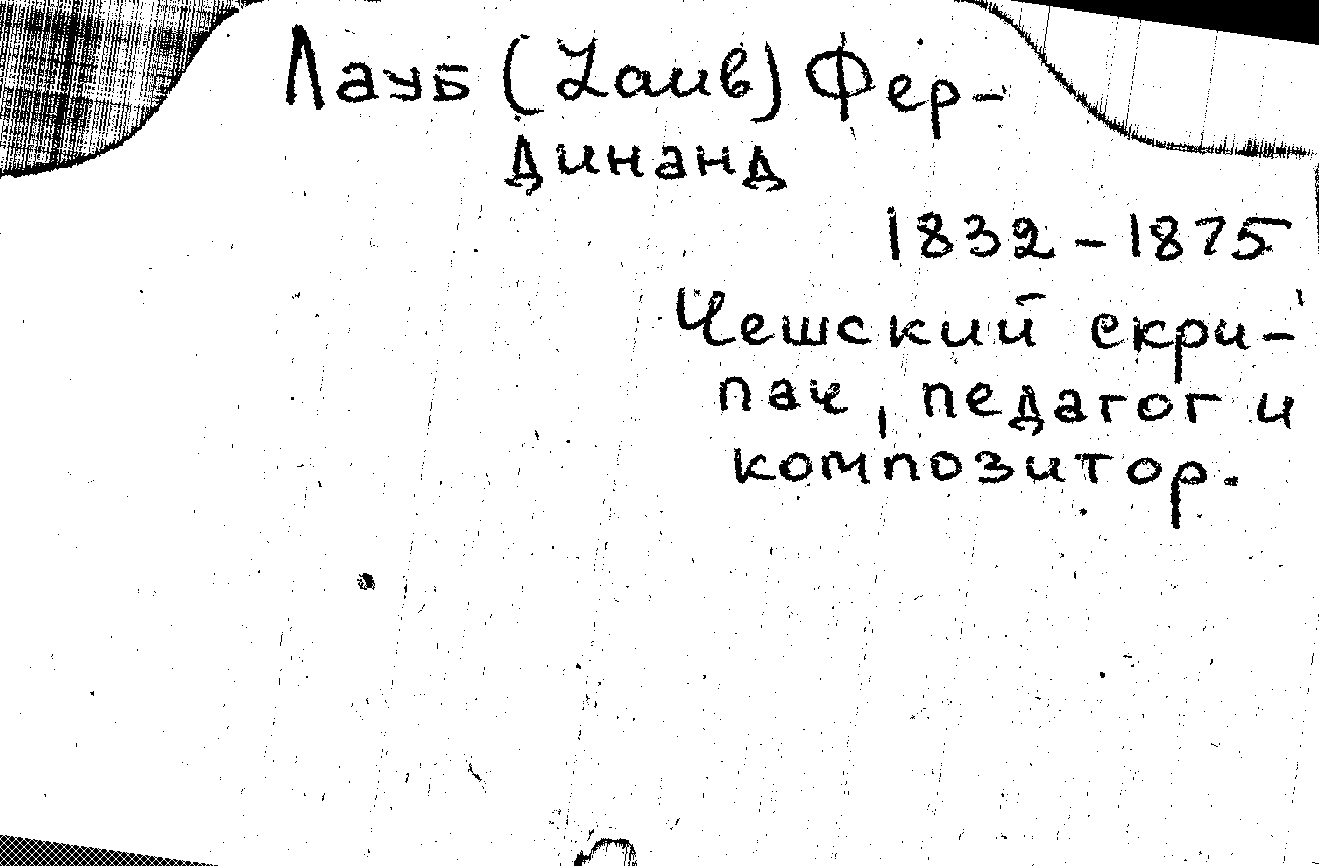 Лауб (Laub) Фер-
динанд
1832 - 1875
Чешский скри-
пач, педагог и
композитор.